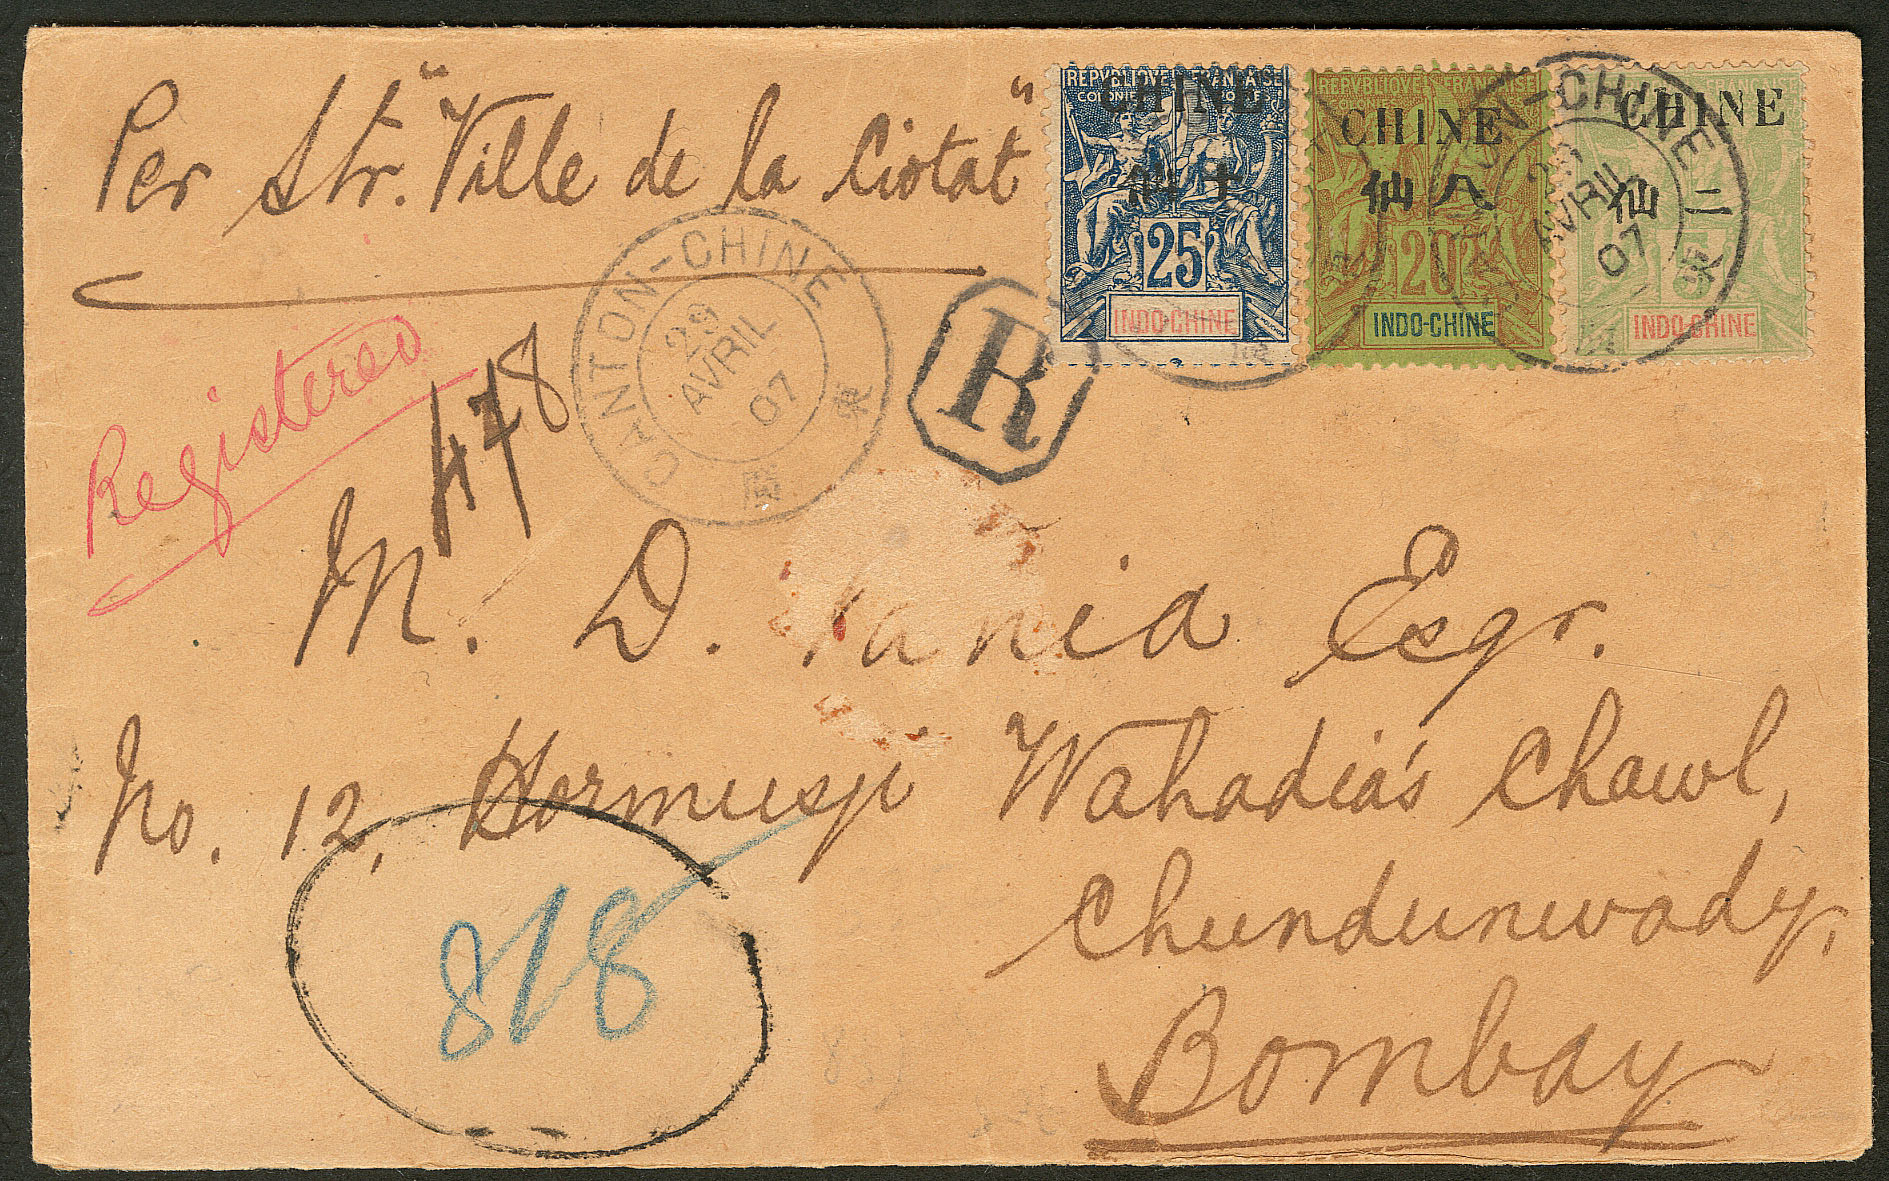 Per Str. "Ville de la Ciotat"
REPVBLIQVE FRANÇAISE
COLONIES
CHINE
仙十
25
INDO-CHINE
REPVBLIQVE FRANÇAISE
CHINE
仙八
20
INDO-CHINE
FRANÇAISE
CHINE
仙二
5
INDO-CHINE
CANTON-CHINE
29
AVRIL
07
廣 東
CHINE
AVRIL
07
東
R
Registered
478
M. D. ania Esqr.
No. 12, Hormusji Wahadia's Chawl,
Chundunwady,
Bombay
818